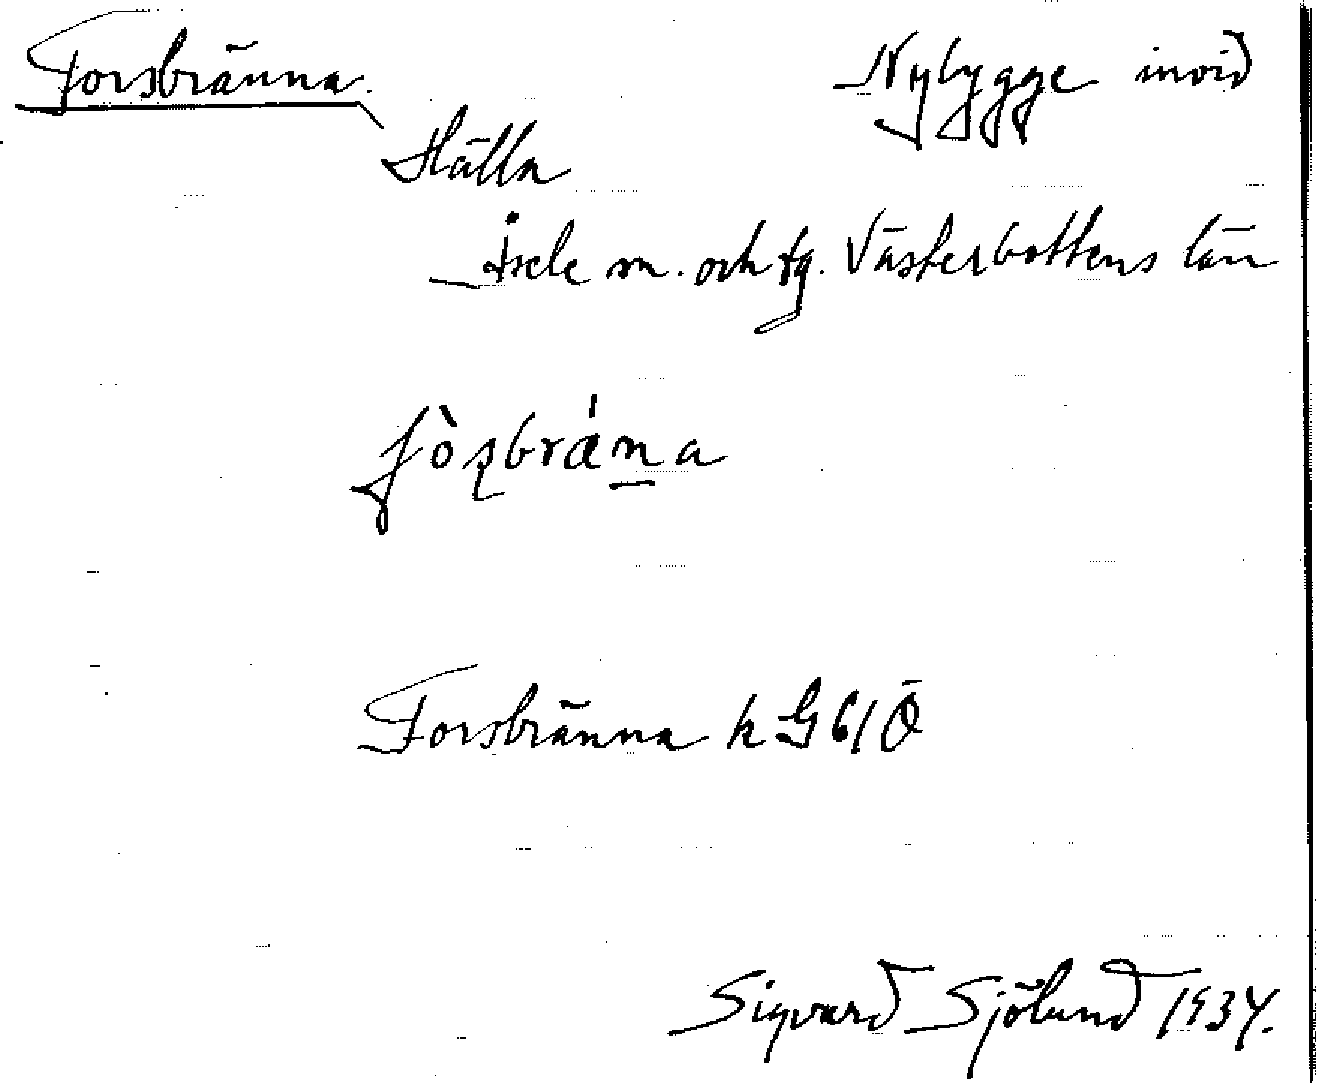 Forsbränna. Nybygge invid
Hälla
Åsele sn. och tg. Västerbottens län
Forsbränna k G 61 Ö
Sigvard Sjölund 1934.